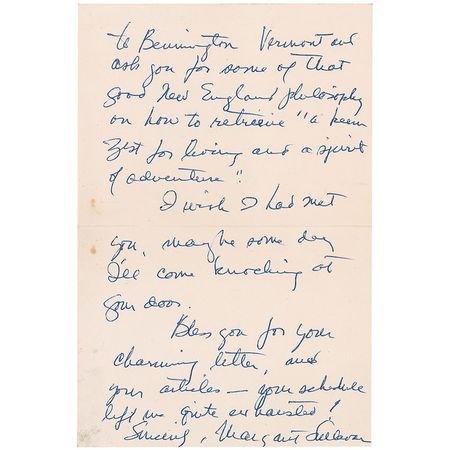 to Bennington Vermont and
ask you for some of that
good New England philosophy
on how to retrieve "a keen
zest for living and a spirit
of adventure".
I wish I had met
you, maybe some day
I'll come knocking at
your door.
Bless you for your
charming letter, and
your articles — your schedule
left me quite exhausted!
Sincerely, Margaret Sullavan